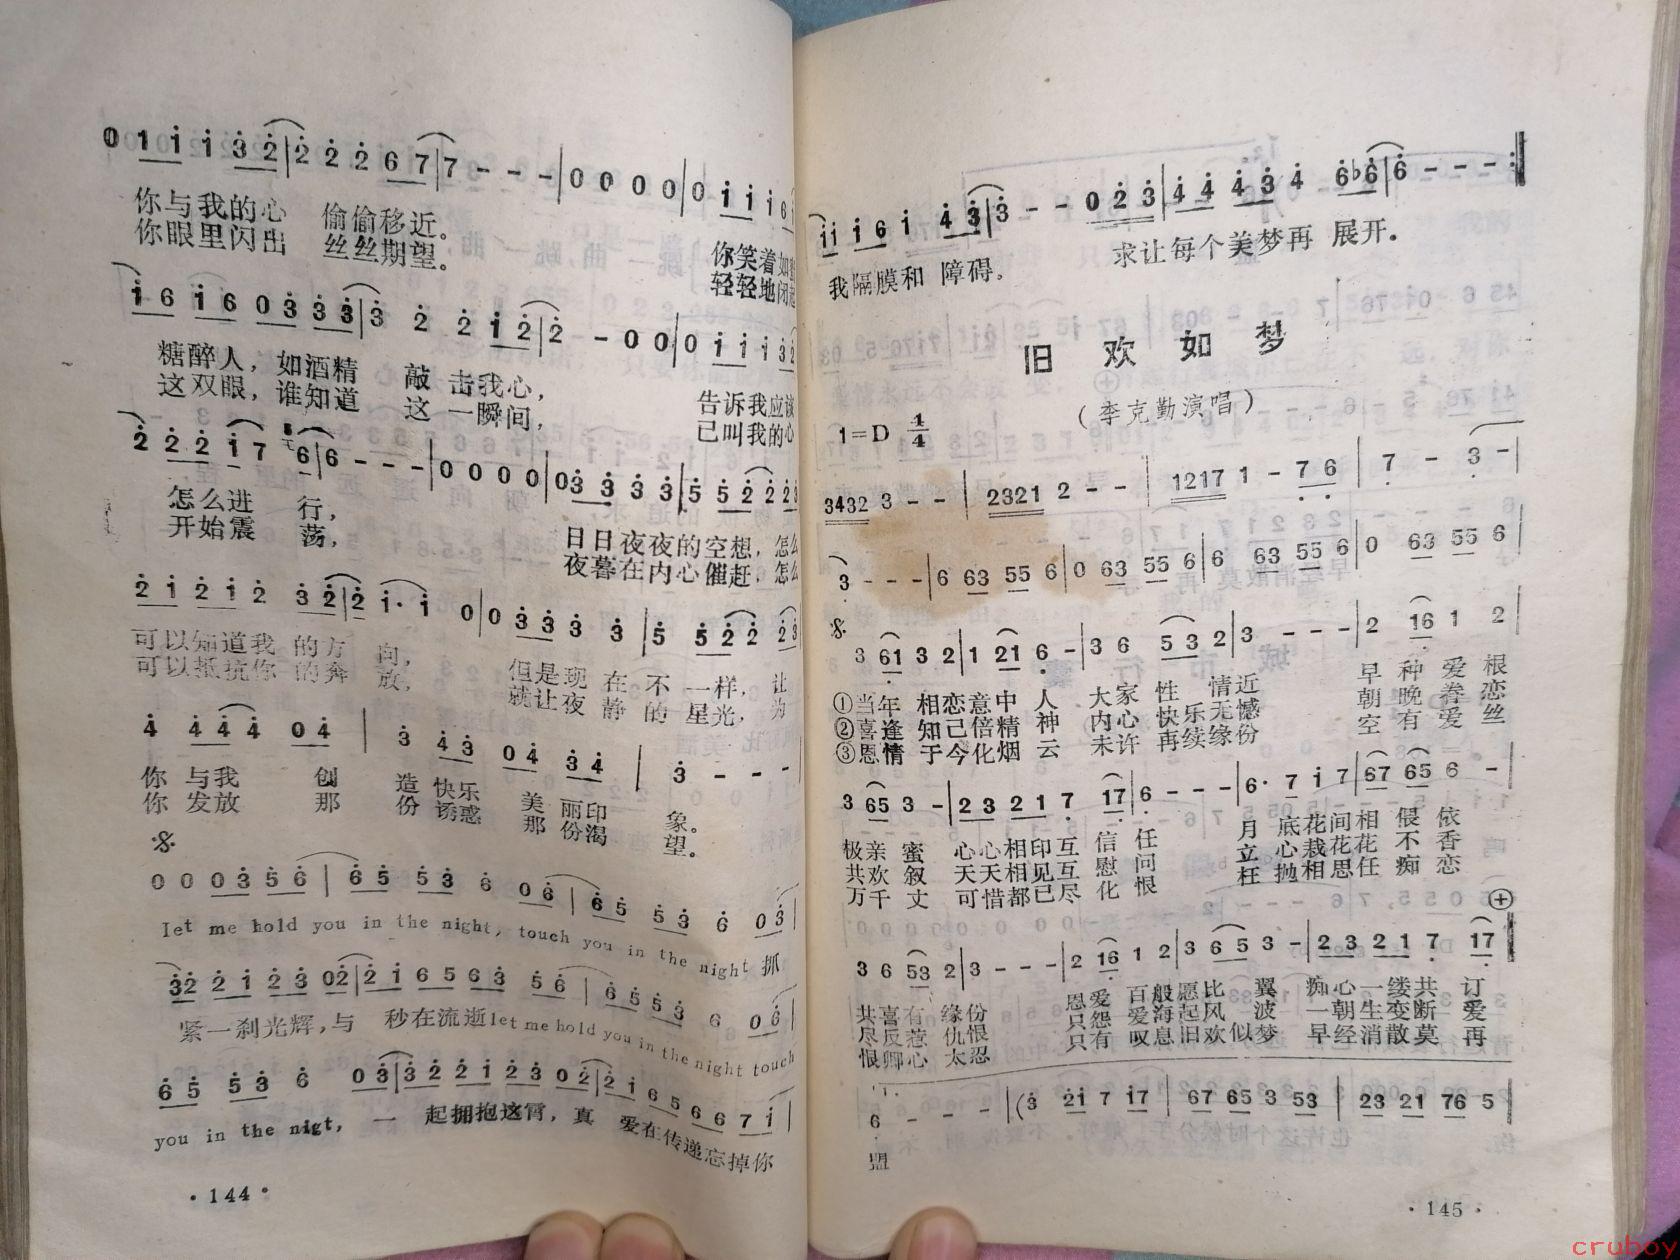 0 1 1 1 3 2 | 2 2 2 6 7 | 7 - - - | 0 0 0 0 | 0 1 1 1 6
你与我的心 偷偷移近。 你笑着如
你眼里闪出 丝丝期望。 轻轻地闭
1 6 1 6 0 3 3 3 | 3 2 2 1 2 | 2 - 0 0 | 0 1 1 1 3 2
糖醉人，如酒精 敲 击我心， 告诉我应该
这双眼，谁知道 这 一瞬间， 已叫我的心
2 2 2 1 7 6 | 6 - - - | 0 0 0 0 | 0 3 3 3 3 | 5 5 2 2 2 3
怎么进 行， 日日夜夜的空想，怎么
开始震 荡， 夜暮在内心催赶，怎么
2 1 2 1 2 3 2 | 2 1· 1 0 | 0 3 3 3 3 | 5 5 2 2 2 3
可以知道我 的方 向， 但是现 在 不 一样，让
可以抵抗你 的奔 放， 就让夜 静 的 星光，为
4 4 4 4 0 4 | 3 4 3 0 4 3 4 | 3 - - -
你 与我 创 造 快乐 美 丽印 象。
你 发放 那 份 诱惑 那 份渴 望。
0 0 0 3 5 6 | 6 5 5 3 6 0 6 | 6 5 5 3 6 0 3
let me hold you in the night, touch you in the night 抓
3 2 2 1 2 3 0 2 | 2 1 6 5 6 3 5 6 | 6 5 5 3 6 0 6
紧一刹光辉，与 秒在流逝let me hold you in the night touch
6 5 5 3 6 0 3 | 3 2 2 1 2 3 0 2 | 2 1 6 5 6 6 7 1
you in the nigt, 一 起拥抱这宵，真 爱在传递忘掉你
·144·
1 1 1 6 1 4 3 | 3 - - 0 2 3 | 4 4 4 3 4 6 ♭6 | 6 - - -
我隔膜和 障碍。 求让每个美梦再 展开。
旧 欢 如 梦
（李克勤演唱）
1=D 4/4
3432 3 - - | 2321 2 - - | 1217 1 - 7 6 | 7 - 3 -
3 - - - | 6 63 55 6 | 0 63 55 6 | 6 63 55 6 | 0 63 55 6
3 61 3 2 | 1 21 6 - | 3 6 5 3 2 | 3 - - - | 2 16 1 2
①当年 相恋意中 人 大家 性 情近 早 种 爱 根
②喜逢 知己倍精 神 内心 快乐无憾 朝 晚 眷 恋
③恩情 于今化烟 云 未许 再续缘份 空 有 爱 丝
3 65 3 - | 2 3 2 1 7 17 | 6 - - - | 6· 7 1 7 | 67 65 6 -
极亲 蜜 心心相印互 信 任 月 底花间相 偎 依
共欢 叙 天天相见互 慰 问 立 心栽花花 不 香
万千 丈 可惜都已尽 化 恨 枉 抛相思任 痴 恋
3 6 53 2 | 3 - - - | 2 16 1 2 | 3 6 5 3 - | 2 3 2 1 7 17
共喜有 缘份 恩爱 百般愿比 翼 痴心一缕共 订
尽反惹 仇恨 只怨 爱海起风 波 一朝生变断 爱
恨卿心 太忍 只有 叹息旧欢似梦 早经消散莫 再
6 - - - | (3 21 7 17 | 67 65 3 53 | 23 21 76 5
盟
·145·
cruboy